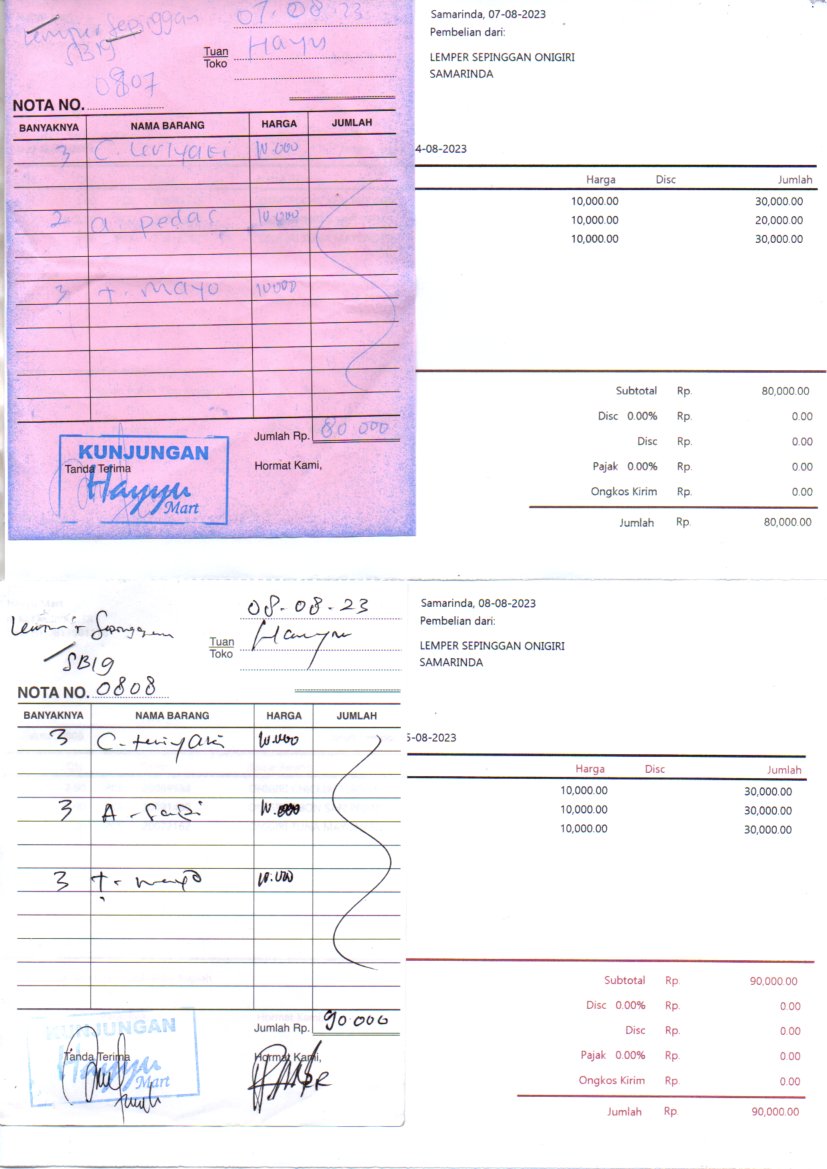 Lemper Sepinggan
SB19
07.08.23
Tuan Hayu
Toko
0807
NOTA NO.
BANYAKNYA NAMA BARANG HARGA JUMLAH
3 C. teriyaki 10.000
2 a. pedas 10.000
3 t. mayo 10000
Jumlah Rp. 80 000
KUNJUNGAN
Tanda Terima Hormat Kami,
Hayyu
Mart
Samarinda, 07-08-2023
Pembelian dari:
LEMPER SEPINGGAN ONIGIRI
SAMARINDA
4-08-2023
Harga Disc Jumlah
10,000.00 30,000.00
10,000.00 20,000.00
10,000.00 30,000.00
Subtotal Rp. 80,000.00
Disc 0.00% Rp. 0.00
Disc Rp. 0.00
Pajak 0.00% Rp. 0.00
Ongkos Kirim Rp. 0.00
Jumlah Rp. 80,000.00
SB19
08-08-23
Tuan
Toko
NOTA NO. 0808
BANYAKNYA NAMA BARANG HARGA JUMLAH
3 C. teriyaki 10.000
3 A - Sapi 10.000
3 t. mayo 10.000
Jumlah Rp. 90 000
KUNJUNGAN
Tanda Terima Hormat Kami,
Hayyu
Mart
Samarinda, 08-08-2023
Pembelian dari:
LEMPER SEPINGGAN ONIGIRI
SAMARINDA
5-08-2023
Harga Disc Jumlah
10,000.00 30,000.00
10,000.00 30,000.00
10,000.00 30,000.00
Subtotal Rp. 90,000.00
Disc 0.00% Rp. 0.00
Disc Rp. 0.00
Pajak 0.00% Rp. 0.00
Ongkos Kirim Rp. 0.00
Jumlah Rp. 90,000.00